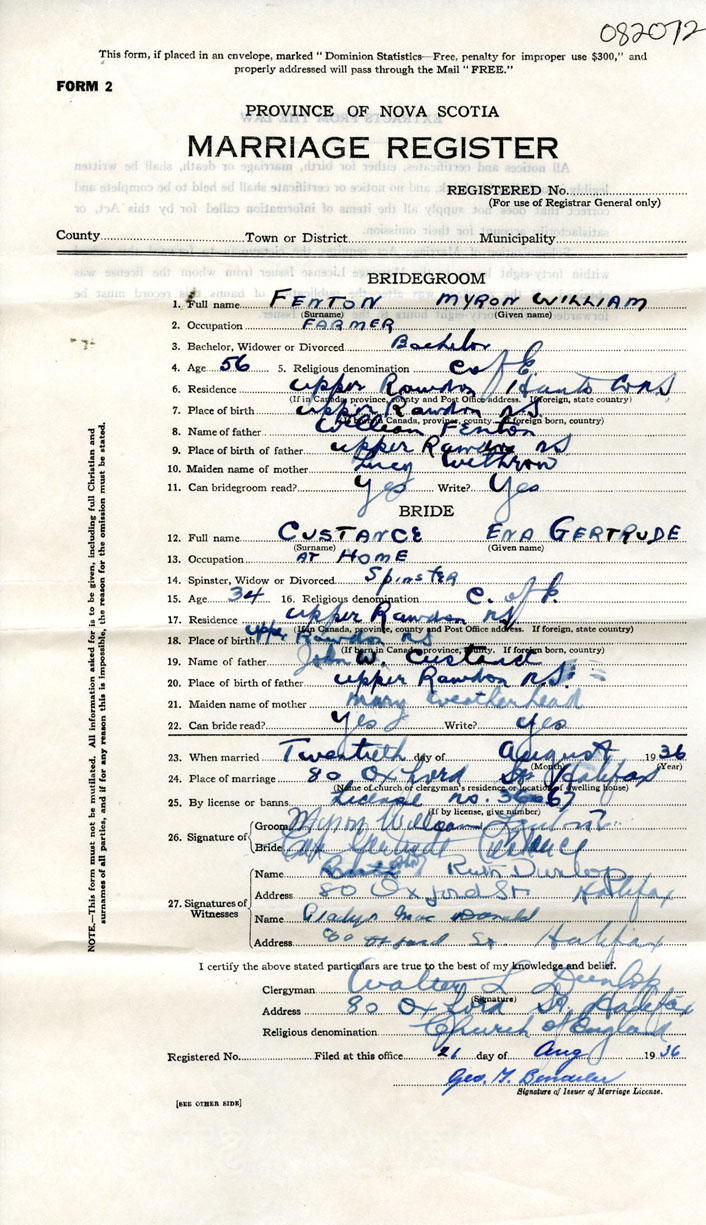 082072
This form, if placed in an envelope, marked "Dominion Statistics—Free, penalty for improper use $300," and
properly addressed will pass through the Mail "FREE."
FORM 2
PROVINCE OF NOVA SCOTIA
MARRIAGE REGISTER
REGISTERED No.
(For use of Registrar General only)
County Town or District Municipality
BRIDEGROOM
1. Full name FENTON MYRON WILLIAM
(Surname) (Given name)
2. Occupation FARMER
3. Bachelor, Widower or Divorced Bachelor
4. Age 56 5. Religious denomination C of E
6. Residence Upper Rawdon Hants
(If in Canada, province, county and Post Office address. If foreign, state country)
7. Place of birth Upper Rawdon N.S.
(If born in Canada, province, county. If foreign born, country)
8. Name of father William Fenton
9. Place of birth of father Upper Rawdon NS
10. Maiden name of mother Lucy Withrow
11. Can bridegroom read? Yes Write? Yes
BRIDE
12. Full name CUSTANCE ENA GERTRUDE
(Surname) (Given name)
13. Occupation AT HOME
14. Spinster, Widow or Divorced Spinster
15. Age 34 16. Religious denomination C. of E.
17. Residence Upper Rawdon NS
(If in Canada, province, county and Post Office address. If foreign, state country)
18. Place of birth Upper Rawdon NS
(If born in Canada, province, county. If foreign born, country)
19. Name of father John W. Custance
20. Place of birth of father Upper Rawdon N.S.
21. Maiden name of mother Mary Weatherhead
22. Can bride read? Yes Write? Yes
23. When married Twentieth day of August 1936
(Month) (Year)
24. Place of marriage 80 Oxford St Halifax
(Name of church or clergyman's residence or location of dwelling house)
25. By license or banns License no.
(If by license, give number)
26. Signature of Groom Myron William Fenton
Bride Ena Gertrude Custance
27. Signatures of Witnesses
Name Ruth Dunlop
Address 80 Oxford St Halifax
Name Gladys MacDonald
Address 80 Oxford St. Halifax
I certify the above stated particulars are true to the best of my knowledge and belief.
Clergyman Walter L Dunlop
(Signature)
Address 80 Oxford St. Halifax
Religious denomination Church of England
Registered No. Filed at this office 21 day of Aug 1936
Geo. 
Signature of Issuer of Marriage License.
[SEE OTHER SIDE]
NOTE.—This form must not be mutilated. All information asked for is to be given, including full Christian and
surnames of all parties, and if for any reason this is impossible, the reason for the omission must be stated.